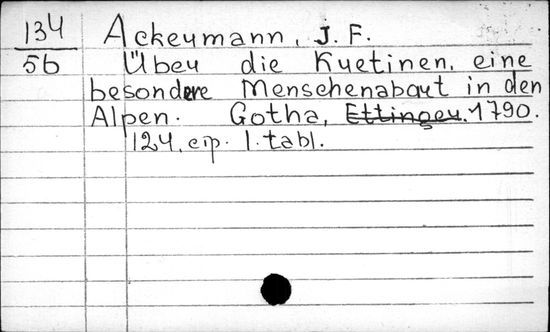 134
56
Ackermann, J. F.
Über die Kretinen, eine
besondere Menschenabart in den
Alpen. Gotha, Ettinger, 1790.
124. стр. 1. tabl.